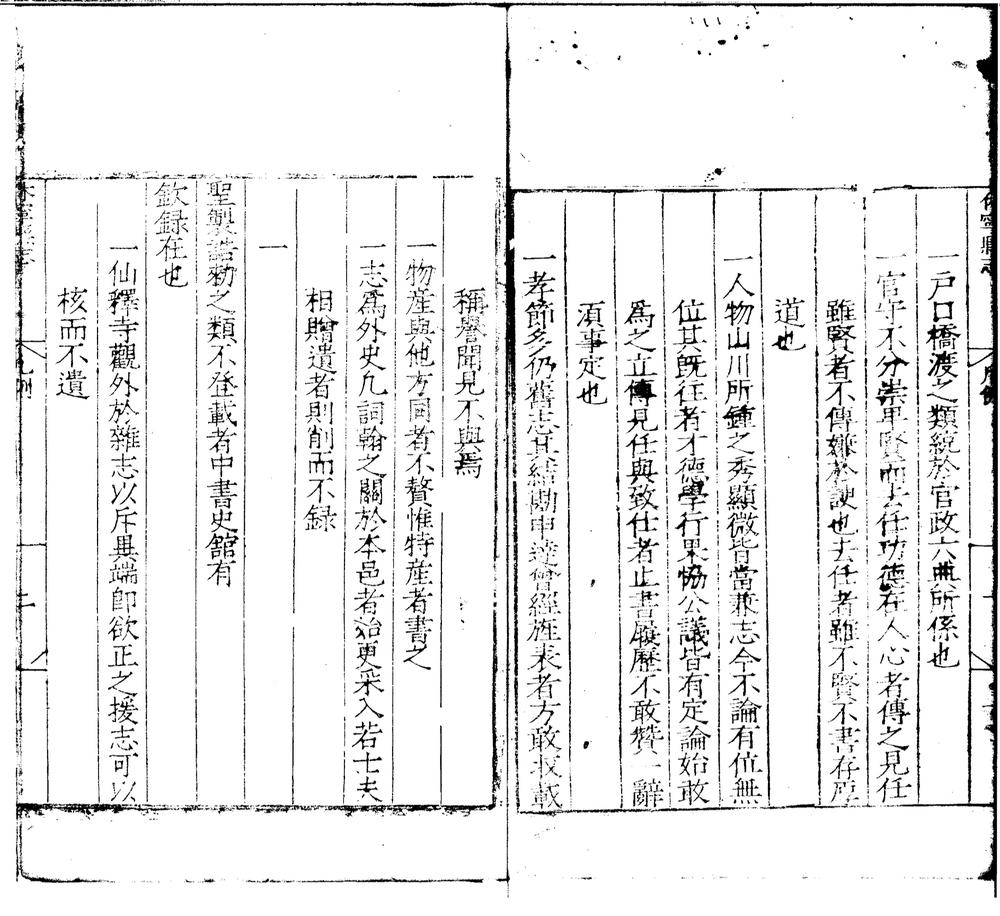 一戶口橋渡之類統於官政六典所係也
一官守不分崇卑賢而去任功德在人心者傳之見任
雖賢者不傳嫌於諛也去任者雖不賢不書存厚
道也
一人物山川所鍾之秀顯微皆當兼志今不論有位無
位其旣往者才德學行果恊公議皆有定論始敢
爲之立傳見任與致仕者止書履歷不敢贊一辭
須事定也
一孝節多仍舊志其結勘申達曾經旌表者方敢収載
稱譽聞見不與焉
一物産與他方同者不贅惟特産者書之
一志爲外史凡詞翰之關於本邑者洽更采入若士夫
相贈遺者則削而不録
一
聖製誥勑之類不登載者中書史舘有
欽録在也
一仙釋寺觀外於雜志以斥異端卽欲正之援志可以
核而不遺